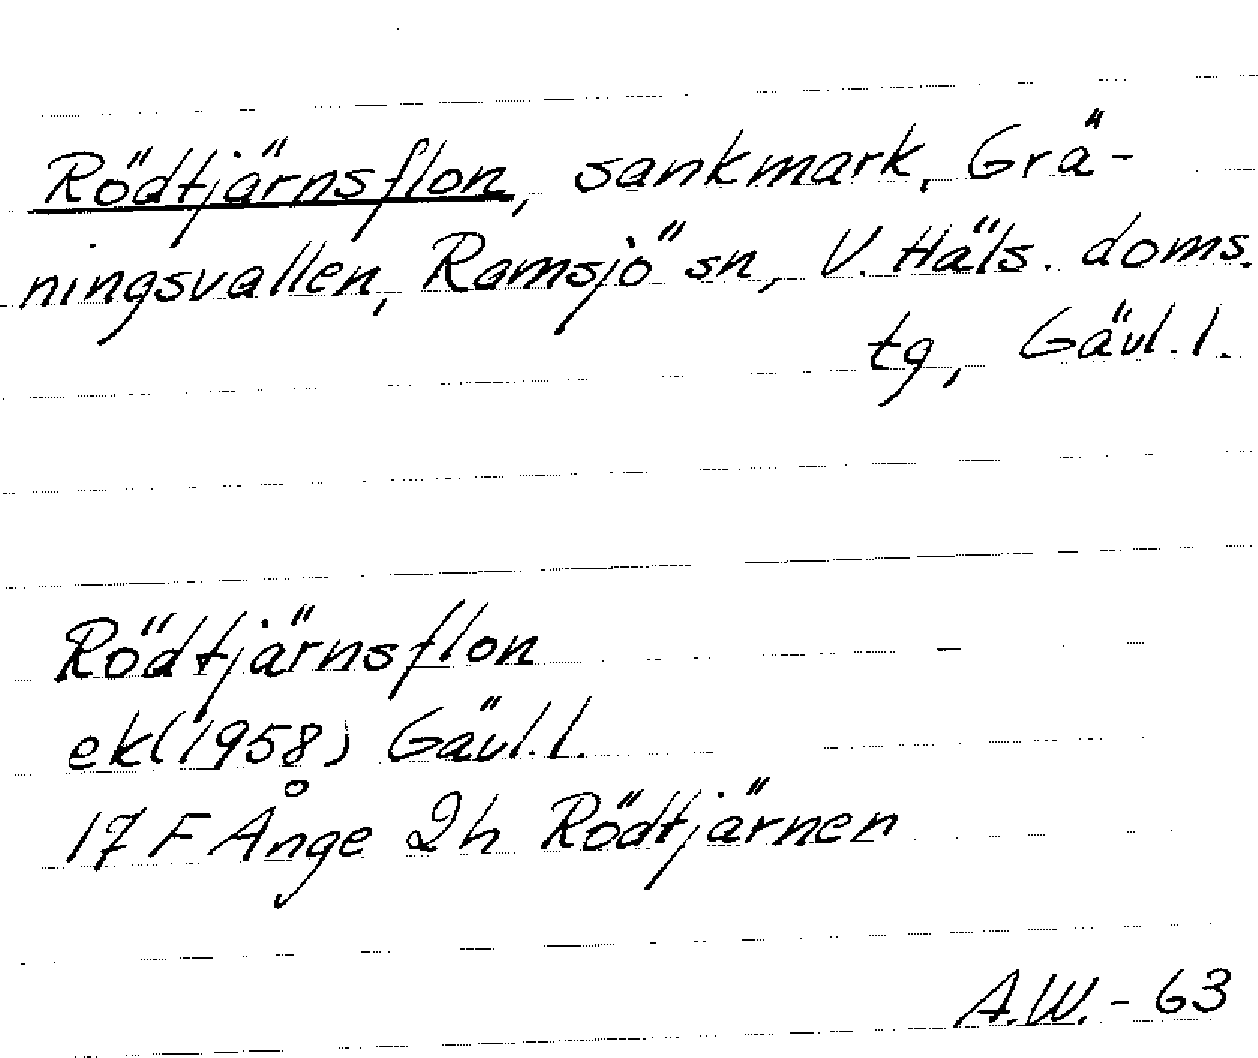 Rödtjärnsflon, sankmark, Grä-
ningsvallen, Ramsjö sn, V. Häls. doms.
tg, Gävl. l.
Rödtjärnsflon
ek(1958) Gävl. l.
17 F Ånge 2h Rödtjärnen
A.W.-63